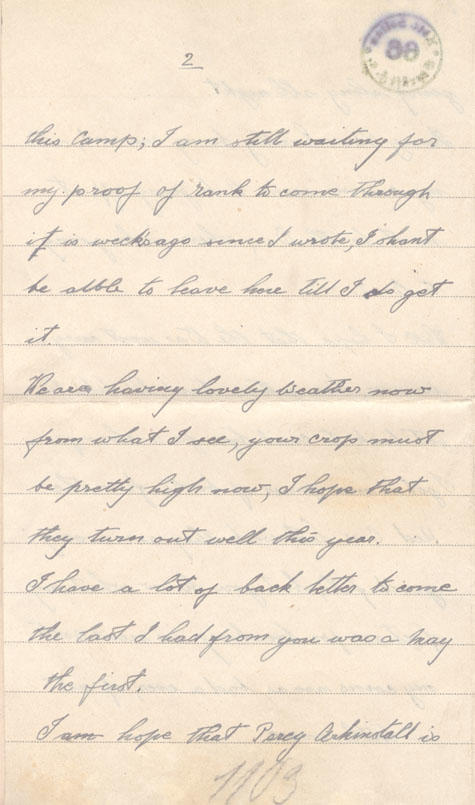 2
88
this Camp; I am still waiting for
my proof of rank to come through
it is weeks ago since I wrote, I shant
be allble to leave here till I do get
it.
We are having lovely weather now
from what I see, your crop must
be pretty high now, I hope that
they turn out well this year.
I have a lot of back letter to come
the last I had from you was a May
the first.
I am hope that Percy Arkinstall is
1103